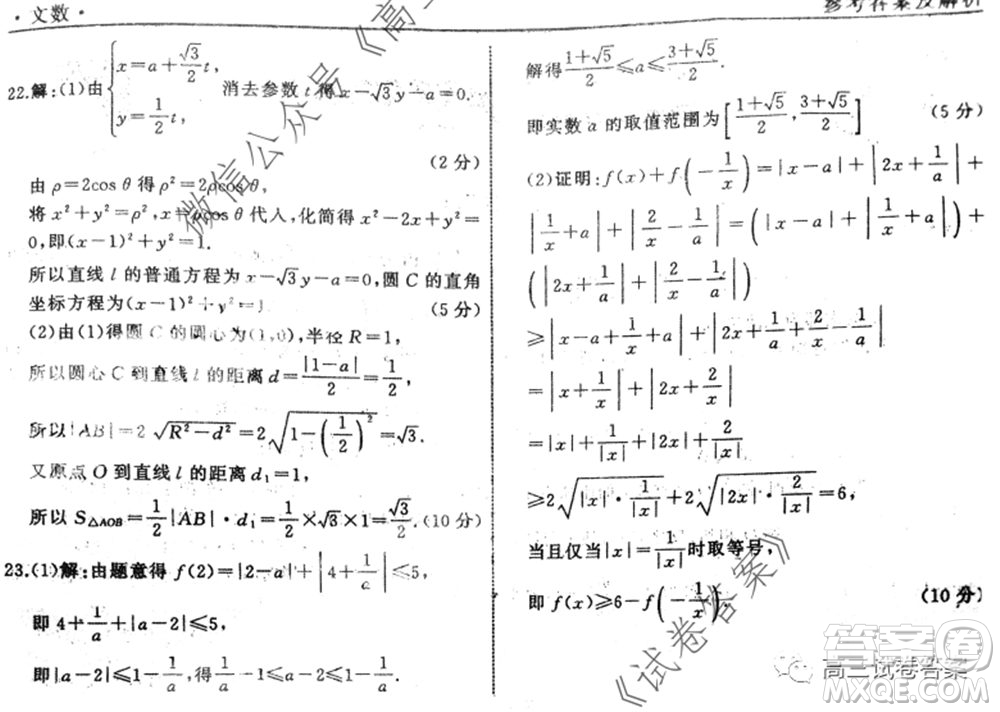 ·文数·
参考答案及解析
22.解:(1)由{x=a+\frac{\sqrt{3}}{2}t, y=\frac{1}{2}t, 消去参数t得x-√3y-a=0.
(2分)
由ρ=2cosθ得ρ²=2ρcosθ,
将x²+y²=ρ²,x=ρcosθ代入,化简得x²-2x+y²=
0,即(x-1)²+y²=1.
所以直线l的普通方程为x-√3y-a=0,圆C的直角
坐标方程为(x-1)²+y²=1.
(5分)
(2)由(1)得圆C的圆心为(1,0),半径R=1,
所以圆心C到直线l的距离d=\frac{|1-a|}{2}=\frac{1}{2},
所以|AB|=2\sqrt{R²-d²}=2\sqrt{1-(\frac{1}{2})²}=√3.
又原点O到直线l的距离d₁=1,
所以S△AOB=\frac{1}{2}|AB|·d₁=\frac{1}{2}×√3×1=\frac{\sqrt{3}}{2}.(10分)
23.(1)解:由题意得f(2)=|2-a|+|4+\frac{1}{a}|≤5,
即4+\frac{1}{a}+|a-2|≤5,
即|a-2|≤1-\frac{1}{a},得\frac{1}{a}-1≤a-2≤1-\frac{1}{a},
解得\frac{1+\sqrt{5}}{2}≤a≤\frac{3+\sqrt{5}}{2}.
即实数a的取值范围为[\frac{1+\sqrt{5}}{2},\frac{3+\sqrt{5}}{2}]
(5分)
(2)证明:f(x)+f(-\frac{1}{x})=|x-a|+|2x+\frac{1}{a}|+
|\frac{1}{x}+a|+|\frac{2}{x}-\frac{1}{a}|=(|x-a|+|\frac{1}{x}+a|)+
(|2x+\frac{1}{a}|+|\frac{2}{x}-\frac{1}{a}|)
≥|x-a+\frac{1}{x}+a|+|2x+\frac{1}{a}+\frac{2}{x}-\frac{1}{a}|
=|x+\frac{1}{x}|+|2x+\frac{2}{x}|
=|x|+\frac{1}{|x|}+|2x|+\frac{2}{|x|}
≥2\sqrt{|x|·\frac{1}{|x|}}+2\sqrt{|2x|·\frac{2}{|x|}}=6,
当且仅当|x|=\frac{1}{|x|}时取等号,
即f(x)≥6-f(-\frac{1}{x}).
(10分)
微信公众号《高三
《试卷答案》
答案圈
高三试卷答案
MXQE.COM